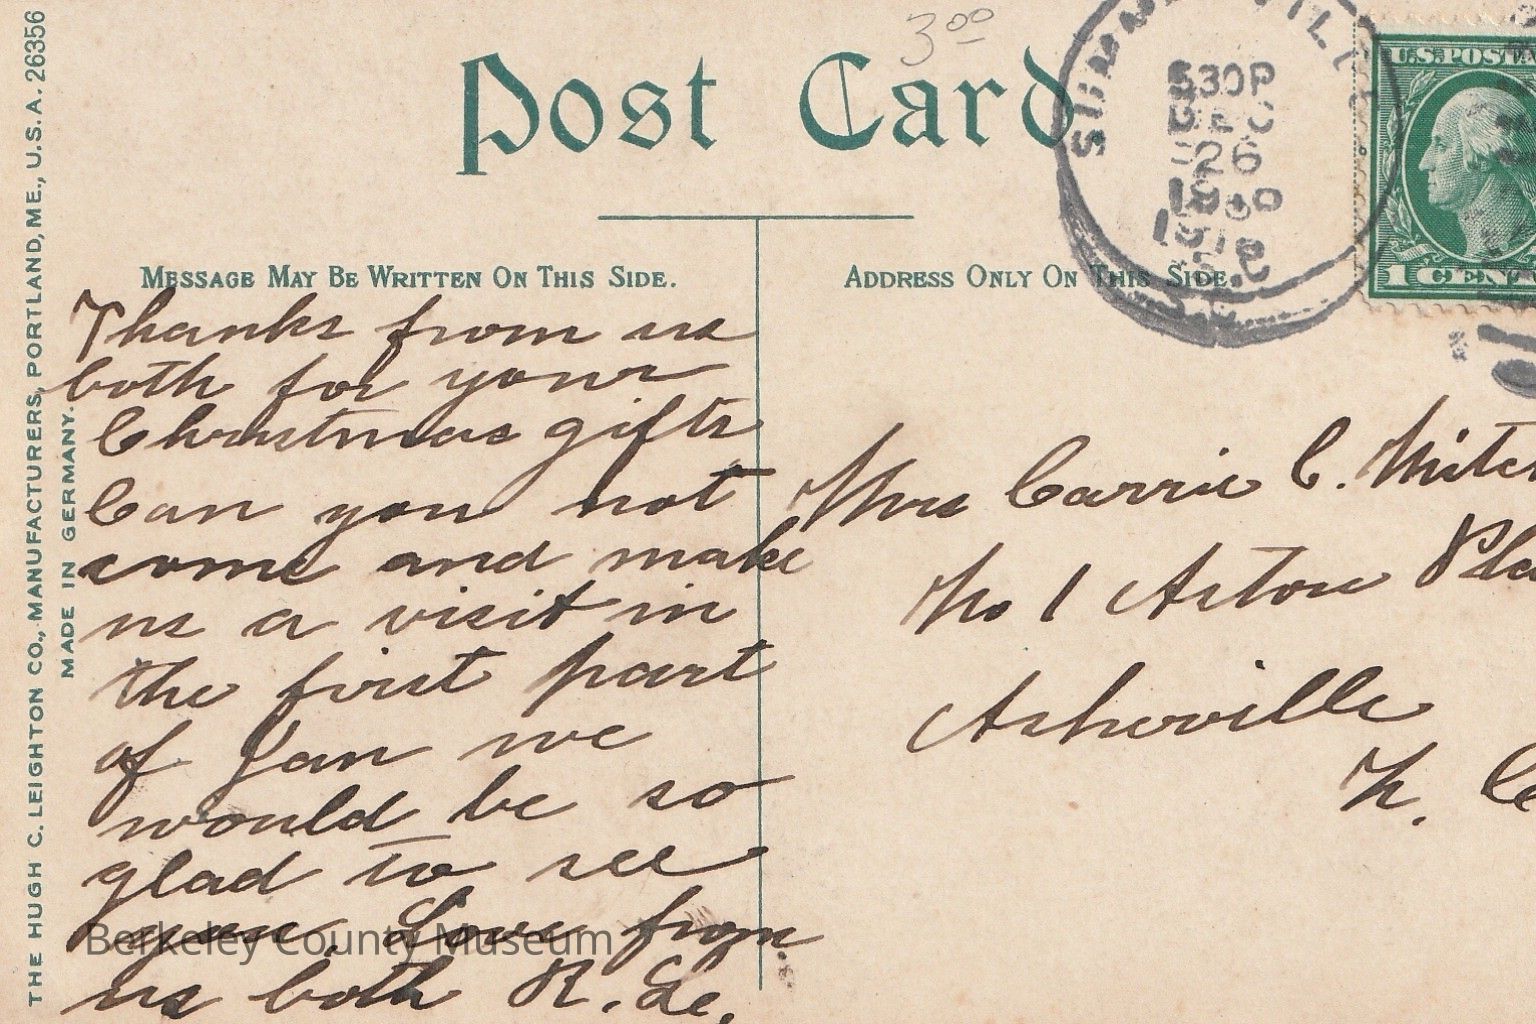 3.00
Post Card
530P
DEC
26
U.S. POST
1 CENT
MESSAGE MAY BE WRITTEN ON THIS SIDE.
ADDRESS ONLY ON THIS SIDE.
Thanks from us
both for your
Christmas gifts
Can you not
come and make
us a visit in
the first part
of Jan we
would be so
glad to see
you. Love from
us both R. Le.
Mrs Carrie C. Mitch
No 1 Aston Pla
Asheville
N. C
THE HUGH C. LEIGHTON CO., MANUFACTURERS, PORTLAND, ME., U.S.A. 26356
MADE IN GERMANY.
Berkeley County Museum